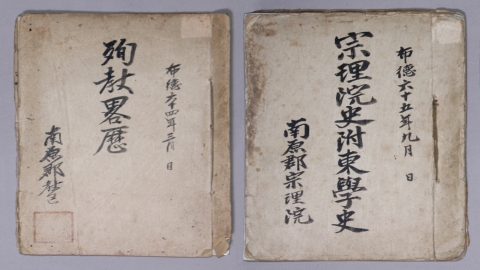 布德六十四年三月 日
殉敎畧歷
南原郡
布德六十五年九月 日
宗理院史附東學史
南原郡宗理院